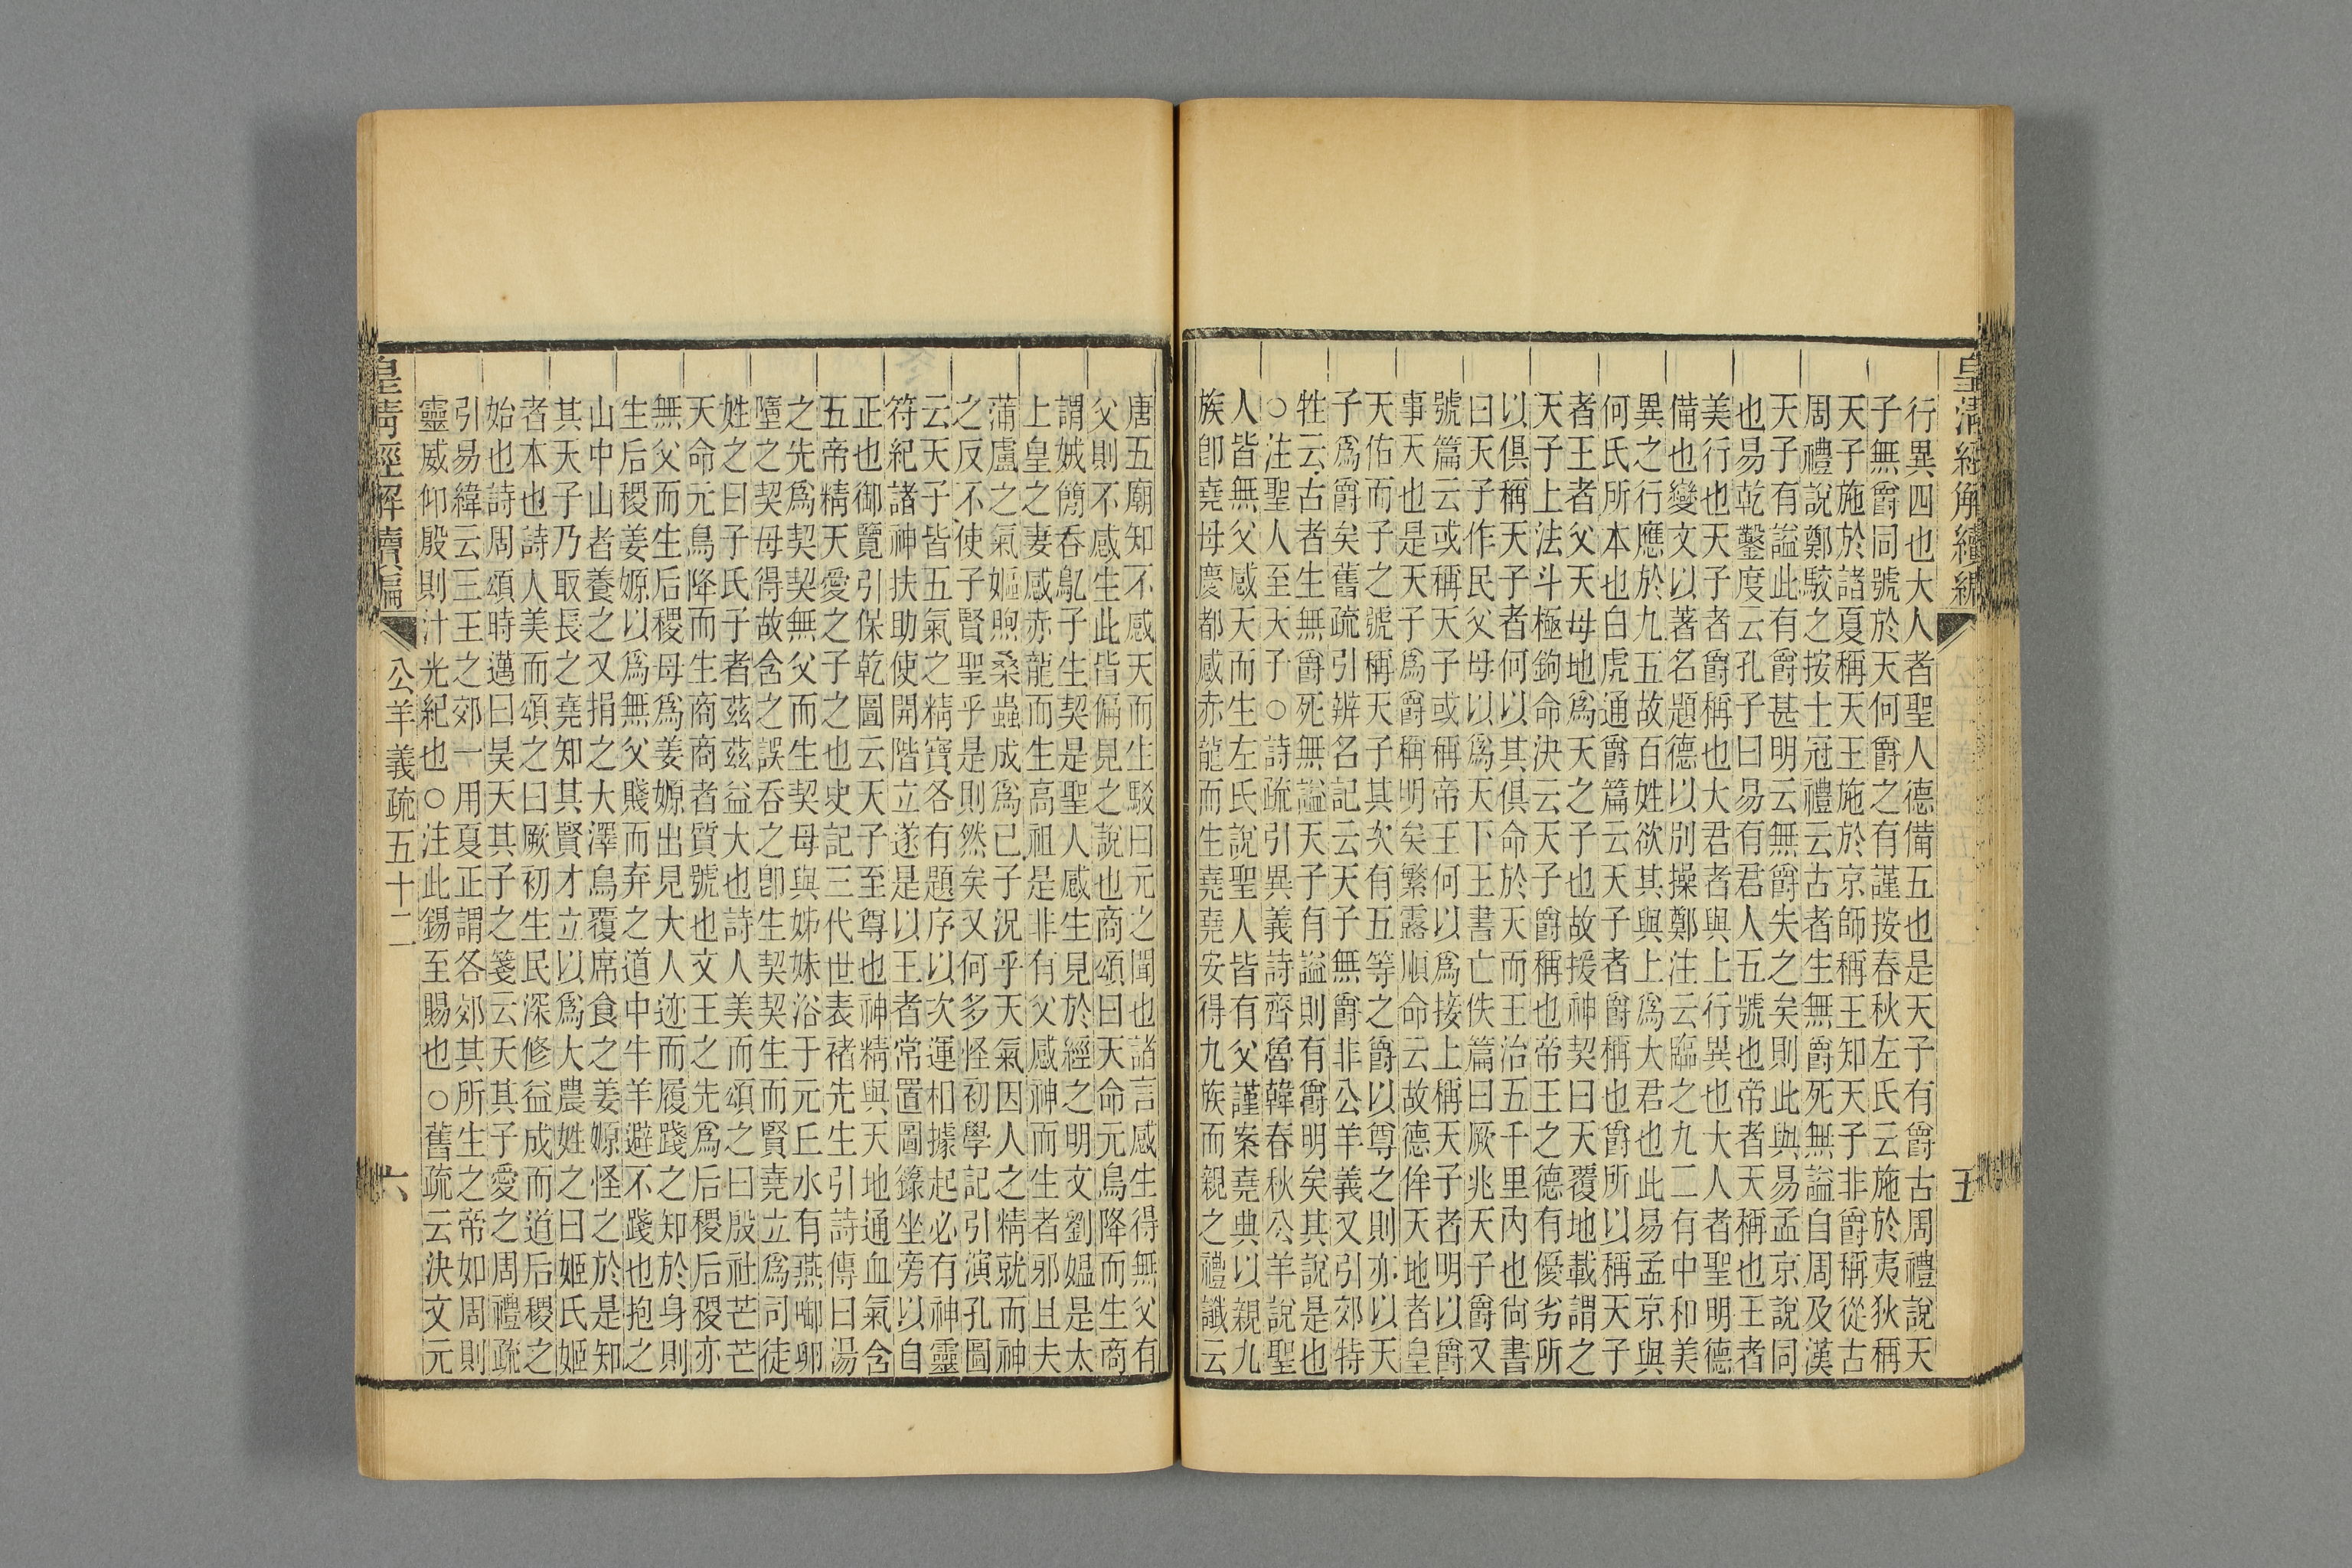 皇清經解續編
五
行異四也大人者聖人德備五也是天子有爵古周禮說天
子無爵同號於天何爵之有謹按春秋左氏云施於夷狄稱
天子施於諸夏稱天王施於京師稱王知天子非爵稱從古
周禮說鄭駮之按士冠禮云古者生無爵死無謚自周及漢
天子有謚此有爵甚明云無爵失之矣則此與易孟京說同
也易乾鑿度云孔子曰易有君人五號也帝者天稱也王者
美行也天子者爵稱也大君者與上行異也大人者聖明德
備也變文以著名題德以別操鄭注云臨之九二有中和美
異之行應於九五故百姓欲其與上爲大君也此易孟京與
何氏所本也白虎通爵篇云天子者爵稱也爵所以稱天子
者王者父天母地爲天之子也故援神契曰天覆地載謂之
天子上法斗極鉤命決云天子爵稱也帝王之德有優劣所
以俱稱天子者何以其俱命於天而王治五千里內也尙書
曰天子作民父母以爲天下王書亡佚篇曰厥兆天子爵又
號篇云或稱天子或稱帝王何以爲接上稱天子者明以爵
事天也是天子爲爵稱明矣繁露順命云故德侔天地者皇
天佑而子之號稱天子其次有五等之爵以尊之則亦以天
子爲爵矣舊疏引辨名記云天子無爵非公羊義又引郊特
牲云古者生無爵死無謚天子有謚則有爵明矣其說是也
○注聖人至天子○詩疏引異義詩齊魯韓春秋公羊說聖
人皆無父感天而生左氏說聖人皆有父謹案堯典以親九
族卽堯母慶都感赤龍而生堯堯安得九族而親之禮讖云
唐五廟知不感天而生駮曰元之聞也諸言感生得無父有
父則不感生此皆偏見之說也商頌曰天命元鳥降而生商
謂娀簡呑鳦子生契是聖人感生見於經之明文劉媼是太
上皇之妻感赤龍而生高祖是非有父感神而生者邪且夫
蒲盧之氣嫗煦桑蟲成爲已子況乎天氣因人之精就而神
之反不使子賢聖乎是則然矣又何多怪初學記引演孔圖
云天子皆五氣之精寶各有題序以次運相據起必有神靈
符紀諸神扶助使開階立遂是以王者常置圖籙坐旁以自
正也御覽引保乾圖云天子至尊也神精與天地通血氣含
五帝精天愛之子之也史記三代世表褚先生引詩傳曰湯
之先爲契契無父而生契母與姊妹浴于元丘水有燕啣卵
墮之契母得故含之誤呑之卽生契契生而賢堯立爲司徒
姓之曰子氏子者茲茲益大也詩人美而頌之曰殷社芒芒
天命元鳥降而生商商者質號也文王之先爲后稷后稷亦
無父而生后稷母爲姜嫄出見大人迹而履踐之知於身則
生后稷姜嫄以爲無父賤而弃之道中牛羊避不踐也抱之
山中山者養之又捐之大澤鳥覆席食之姜嫄怪之於是知
其天子乃取長之堯知其賢才立以爲大農姓之曰姬氏姬
者本也詩人美而頌之曰厥初生民深修益成而道后稷之
始也詩周頌時邁曰昊天其子之箋云天其子愛之周禮疏
引易緯云三王之郊一用夏正謂各郊其所生之帝如周則
靈威仰殷則汁光紀也○注此錫至賜也○舊疏云決文元
皇淸經解續編
公羊義疏五十二
六